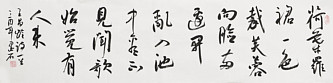 荷叶罗
裙一色
裁芙蓉
向脸两
边开
乱入池
中看不
见闻歌
始觉有
人来
王昌龄诗一首